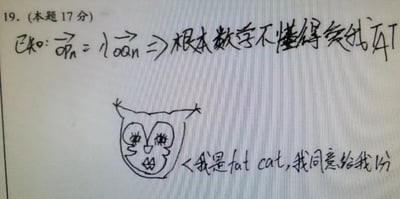 19. (本题17分)
已知: OPn = λOQn => 根本数学不懂得
<我是fat cat,我同意给我1分